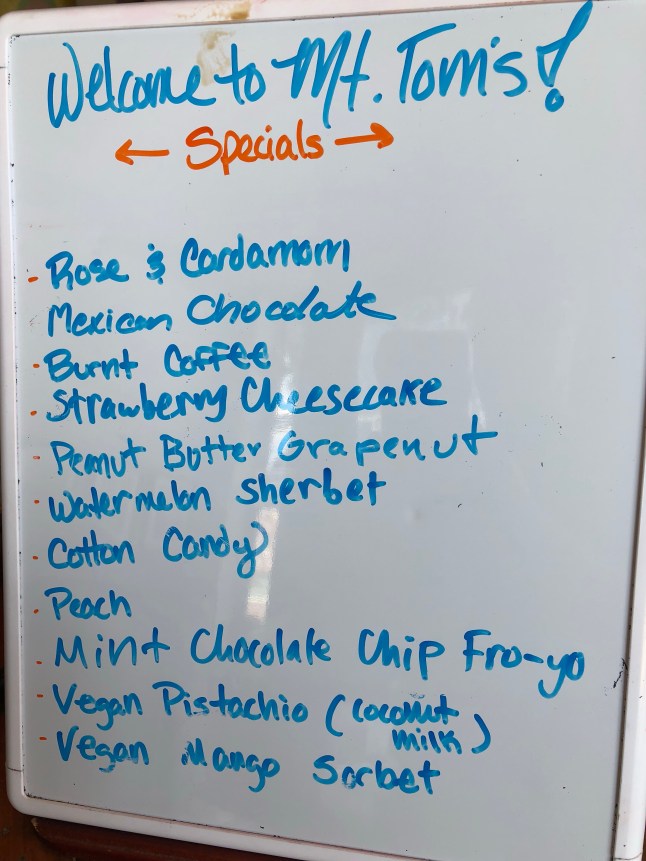 Welcome to Mt. Tom's!
← Specials →
- Rose & Cardamom
Mexican Chocolate
- Burnt Coffee
- Strawberry Cheesecake
- Peanut Butter Grapenut
- Watermelon Sherbet
- Cotton Candy
- Peach
- Mint Chocolate Chip Fro-yo
- Vegan Pistachio (coconut
milk)
- Vegan Mango Sorbet